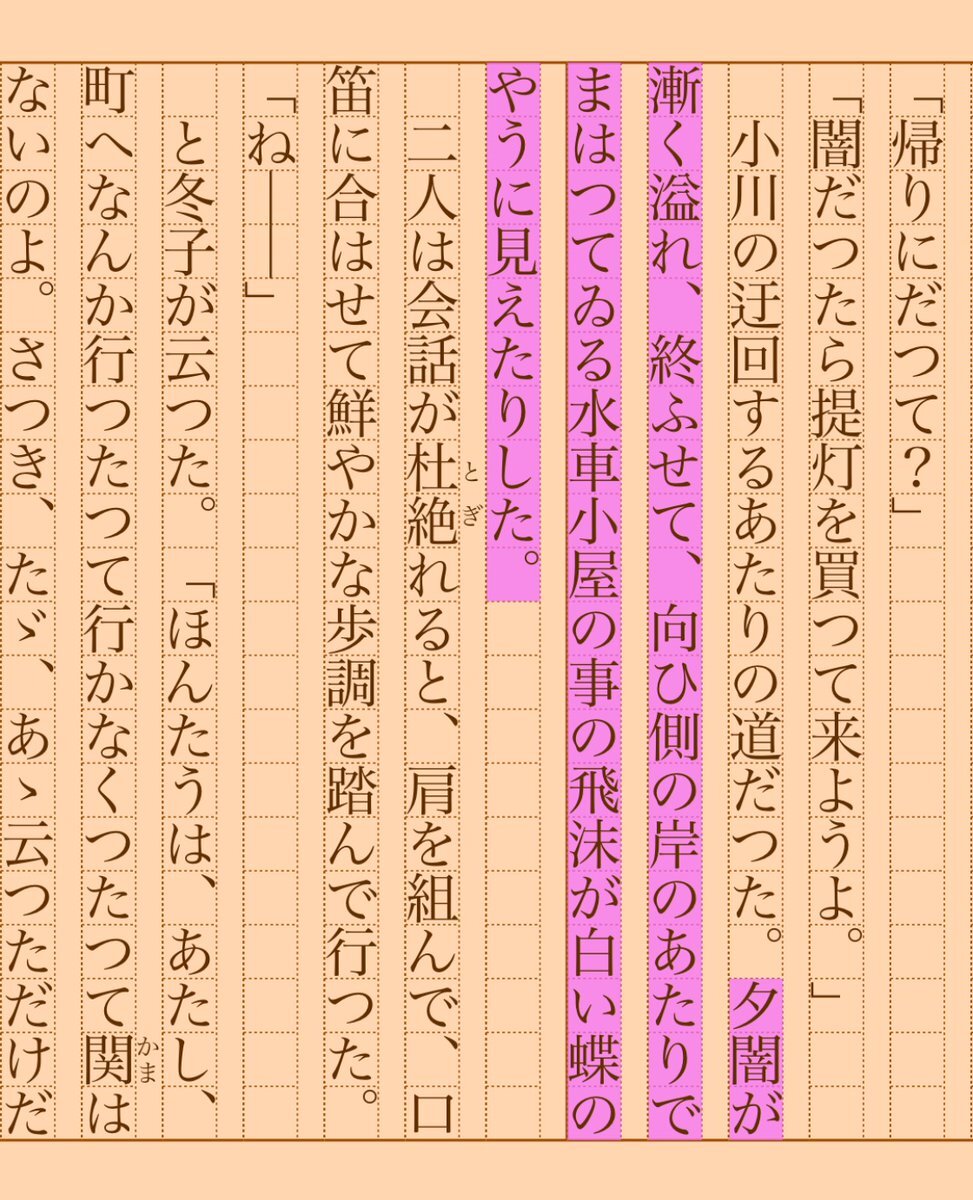 「帰りにだつて？」
「闇だつたら提灯を買つて来ようよ。」
小川の迂回するあたりの道だつた。夕闇が
漸く溢れ、終ふせて、向ひ側の岸のあたりで
まはつてゐる水車小屋の事の飛沫が白い蝶の
やうに見えたりした。
二人は会話が杜絶れると、肩を組んで、口
とぎ
笛に合はせて鮮やかな歩調を踏んで行つた。
「ね――」
と冬子が云つた。「ほんたうは、あたし、
町へなんか行つたつて行かなくつたつて関は
かま
ないのよ。さつき、たゞ、あゝ云つただけだ